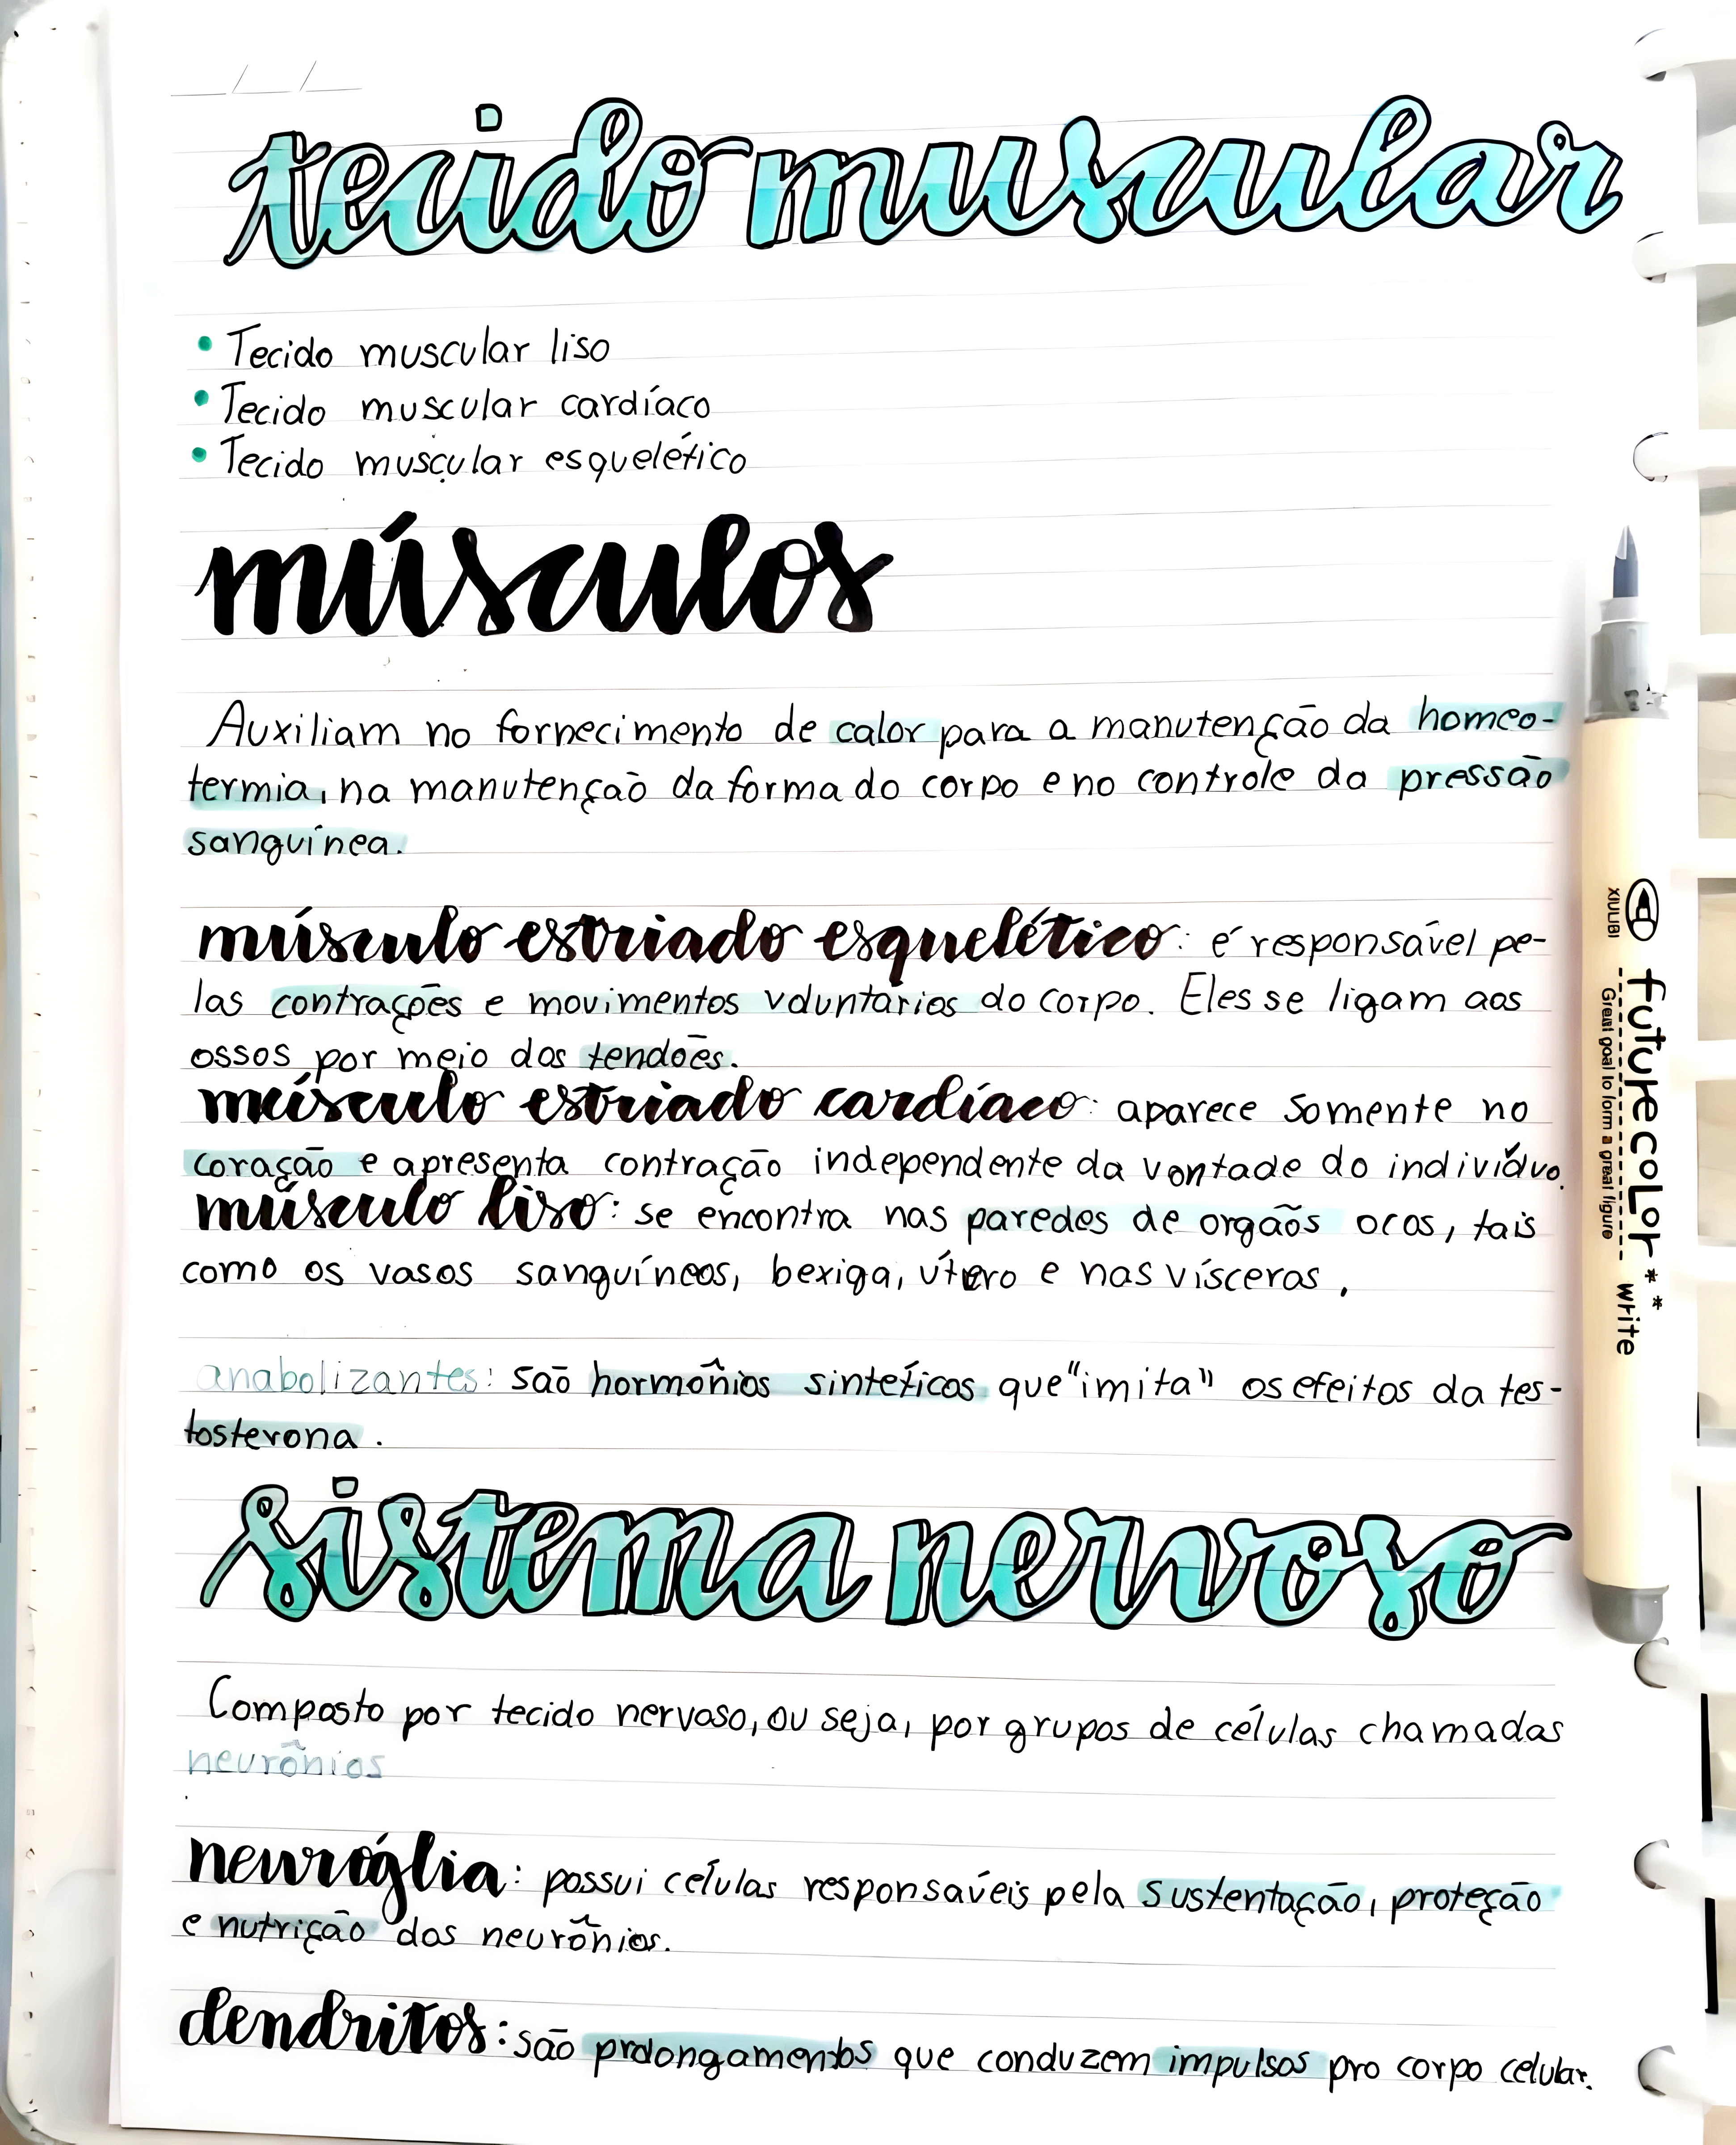 __/__/__
tecido muscular
• Tecido muscular liso
• Tecido muscular cardíaco
• Tecido muscular esquelético
músculos
Auxiliam no fornecimento de calor para a manutenção da homeo-
termia, na manutenção da forma do corpo e no controle da pressão
sanguínea.
músculo estriado esquelético: é responsável pe-
las contrações e movimentos voluntários do corpo. Eles se ligam aos
ossos por meio dos tendões.
músculo estriado cardíaco: aparece somente no
coração e apresenta contração independente da vontade do indivíduo.
músculo liso: se encontra nas paredes de orgãos ocos, tais
como os vasos sanguíneos, bexiga, útero e nas vísceras.
anabolizantes: são hormônios sintéticos que "imita" os efeitos da tes-
tosterona.
sistema nervoso
Composto por tecido nervoso, ou seja, por grupos de células chamadas
neurônios
.
neuróglia: possui células responsáveis pela sustentação, proteção
e nutrição dos neurônios.
dendritos: são prolongamentos que conduzem impulsos pro corpo celular.
XIULIBI
futurecolor** write
Great goal to form a great figure